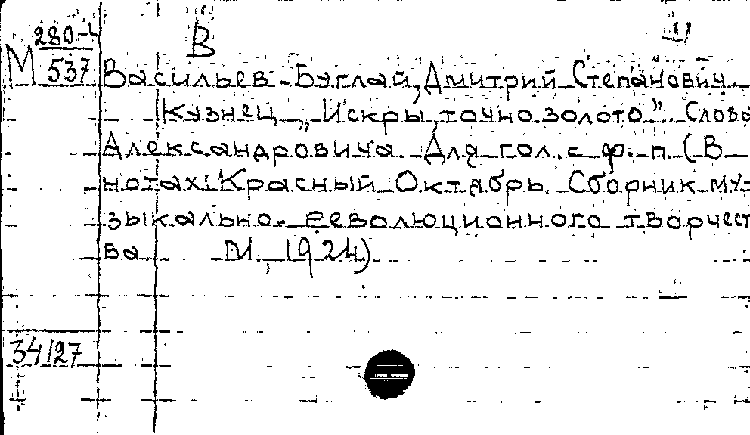 280-4
В
М 537
Васильев-Буглай, Дмитрий Степанович.
Кузнец „Искры, точно золото". Слова
Александровича. Для гол. с ф.-п. (В
нотах: Красный Октябрь. Сборник му-
зыкально-революционного творчест-
ва М, 1924)
34/27